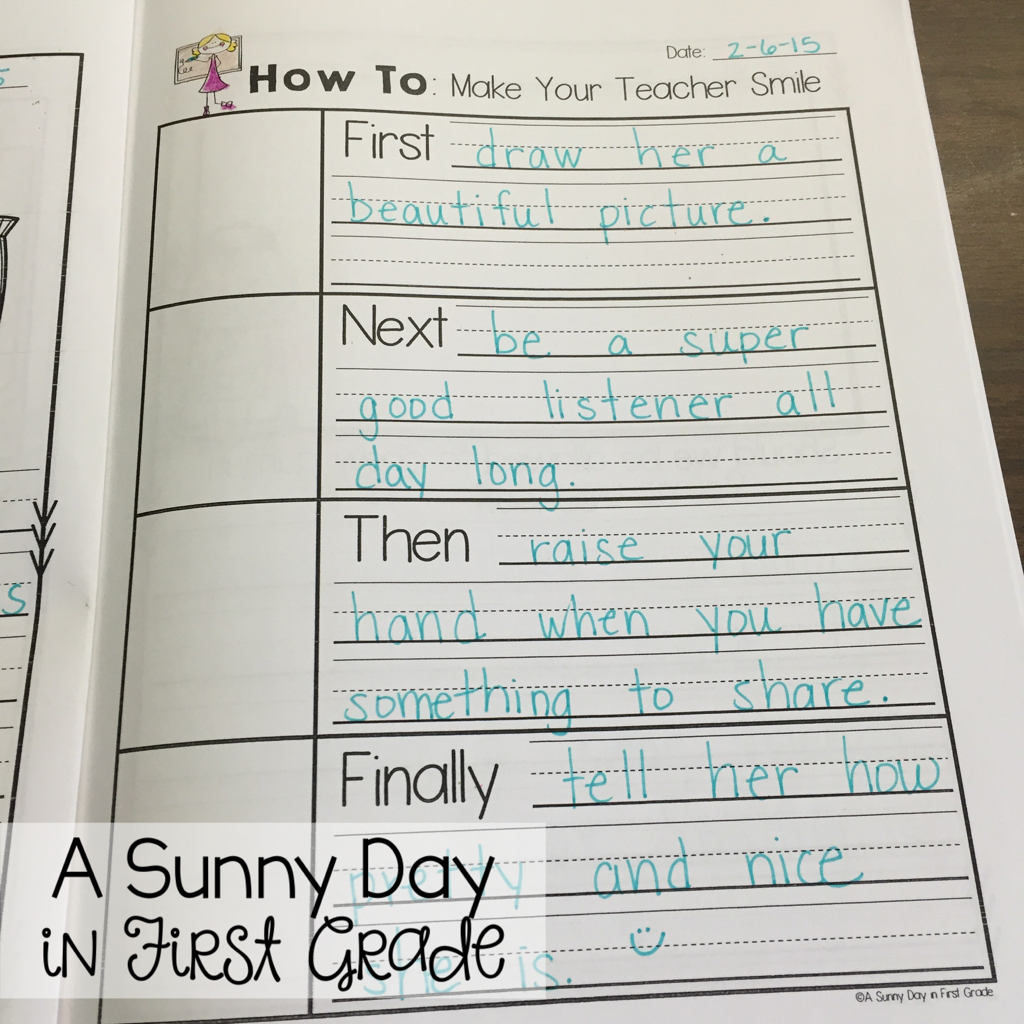 Date: 2-6-15
How To: Make Your Teacher Smile
First draw her a
beautiful picture.
Next be a super
good listener all
day long.
Then raise your
hand when you have
something to share.
Finally tell her how
pretty and nice
she is.
A Sunny Day
in First Grade
©A Sunny Day in First Grade
s